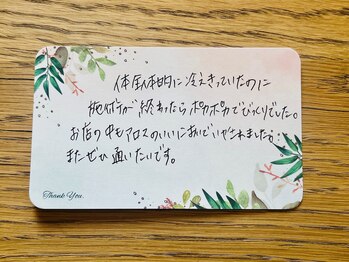 体全体的に冷えきっていたのに
施術が終わったらポカポカでびっくりでした。
お店の中もアロマのいいにおいでいやされました
またぜひ通いたいです。
Thank You.